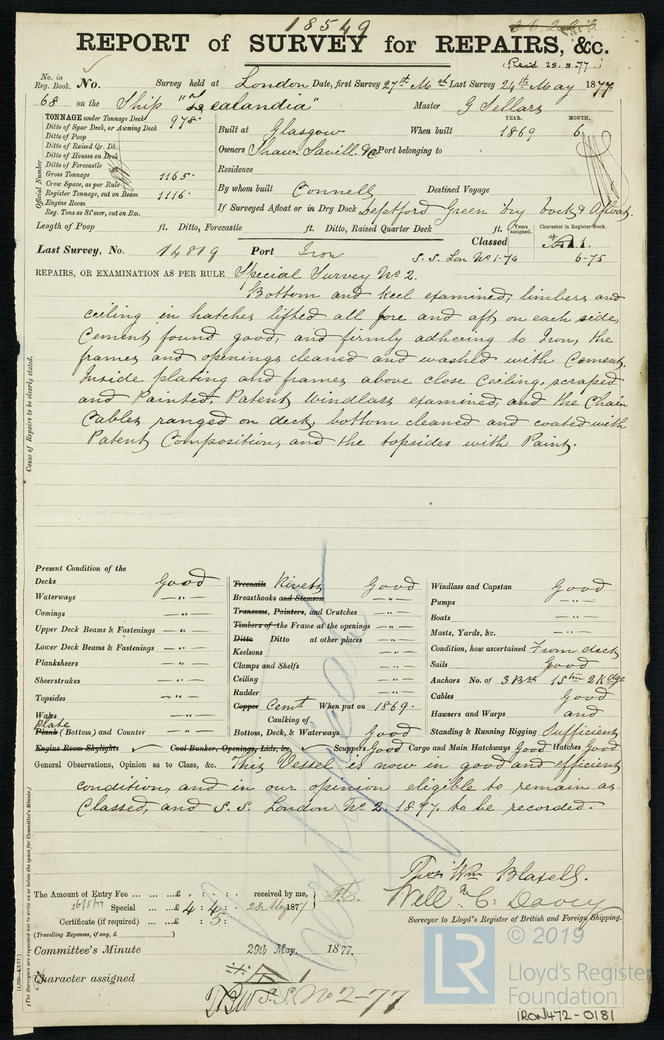 18549
REPORT of SURVEY for REPAIRS, &c.
No. in Reg. Book. No. Survey held at London Date, first Survey 27th Mch Last Survey 24th May 1877.
68 on the Ship "Zealandia" Master G Sellars
TONNAGE under Tonnage Deck 978.
Ditto of Spar Deck, or Awning Deck
Ditto of Poop
Ditto of Raised Qr. Dk.
Ditto of Houses on Deck
Ditto of Forecastle
Gross Tonnage 1165.
Crew Space, as per Rule
Register Tonnage, cut on Beam 1116.
Engine Room
Reg. Tons as St'mer, cut on Bm.
Official Number
YEAR. MONTH.
Built at Glasgow When built 1869 6
Owners Shaw Savill & Co Port belonging to
Residence
By whom built Connell Destined Voyage
If Surveyed Afloat or in Dry Dock Deptford Green Dry dock & Afloat.
Length of Poop ft. Ditto, Forecastle ft. Ditto, Raised Quarter Deck ft.
Years assigned. Character in Register Book.
Last Survey, No. 14819 Port Iron Classed A.1.
S.S. Lon No 1-74 6-75
REPAIRS, OR EXAMINATION AS PER RULE Special Survey No 2.
Bottom and keel examined, timbers and
ceiling in hatches lifted all fore and aft on each side,
Cement found good, and firmly adhering to Iron, the
frames and openings cleaned and washed with Cement,
Inside plating and frames above close Ceiling, scraped
and Painted, Patent windlass examined, and the Chain
Cables ranged on deck, bottom cleaned and coated with
Patent Composition, and the topsides with Paint.
Cause of Repairs to be clearly stated.
Present Condition of the
Decks Good
Waterways — " —
Comings — " —
Upper Deck Beams & Fastenings — " —
Lower Deck Beams & Fastenings — " —
Planksheers — " —
Sheerstrakes — " —
Topsides — " —
Wales — " —
Plate
Plank (Bottom) and Counter — " —
Engine Room Skylights ✓ Coal Bunker, Openings, Lids, &c. ✓
Treenails Rivets Good
Breasthooks and Stemson — " —
Transoms, Pointers, and Crutches — " —
Timbers of the Frame at the openings — " —
Ditto Ditto at other places — " —
Keelsons — " —
Clamps and Shelfs — " —
Ceiling — " —
Rudder — " —
Copper Cemt When put on 1869.
Caulking of
Bottom, Deck, & Waterways Good
Scuppers Good Cargo and Main Hatchways Good Hatches Good
Windlass and Capstan Good
Pumps — " —
Boats — " —
Masts, Yards, &c. — " —
Condition, how ascertained From deck
Sails Good
Anchors No. of 3 Brs 1 Stm 2 Kdge
Cables Good
Hawsers and Warps and
Standing & Running Rigging Sufficient
General Observations, Opinion as to Class, &c. This Vessel is now in good and efficient
condition, and in our opinion eligible to remain as
Classed, and S.S. London No 2. 1877. to be recorded.
The Amount of Entry Fee ... £ : : received by me,
26/5/77 Special ... £ 4 : 4 : 28 May 1877
Certificate (if required) ... £ : 5 :
(Travelling Expenses, if any, £ )
Wm Blaxell.
Will m C. Davey
Surveyor to Lloyd's Register of British and Foreign Shipping.
Committee's Minute 29th May. 1877.
Character assigned
S.S. No 2-77
© 2019
LR Lloyd's Register
Foundation
IRON472-0181